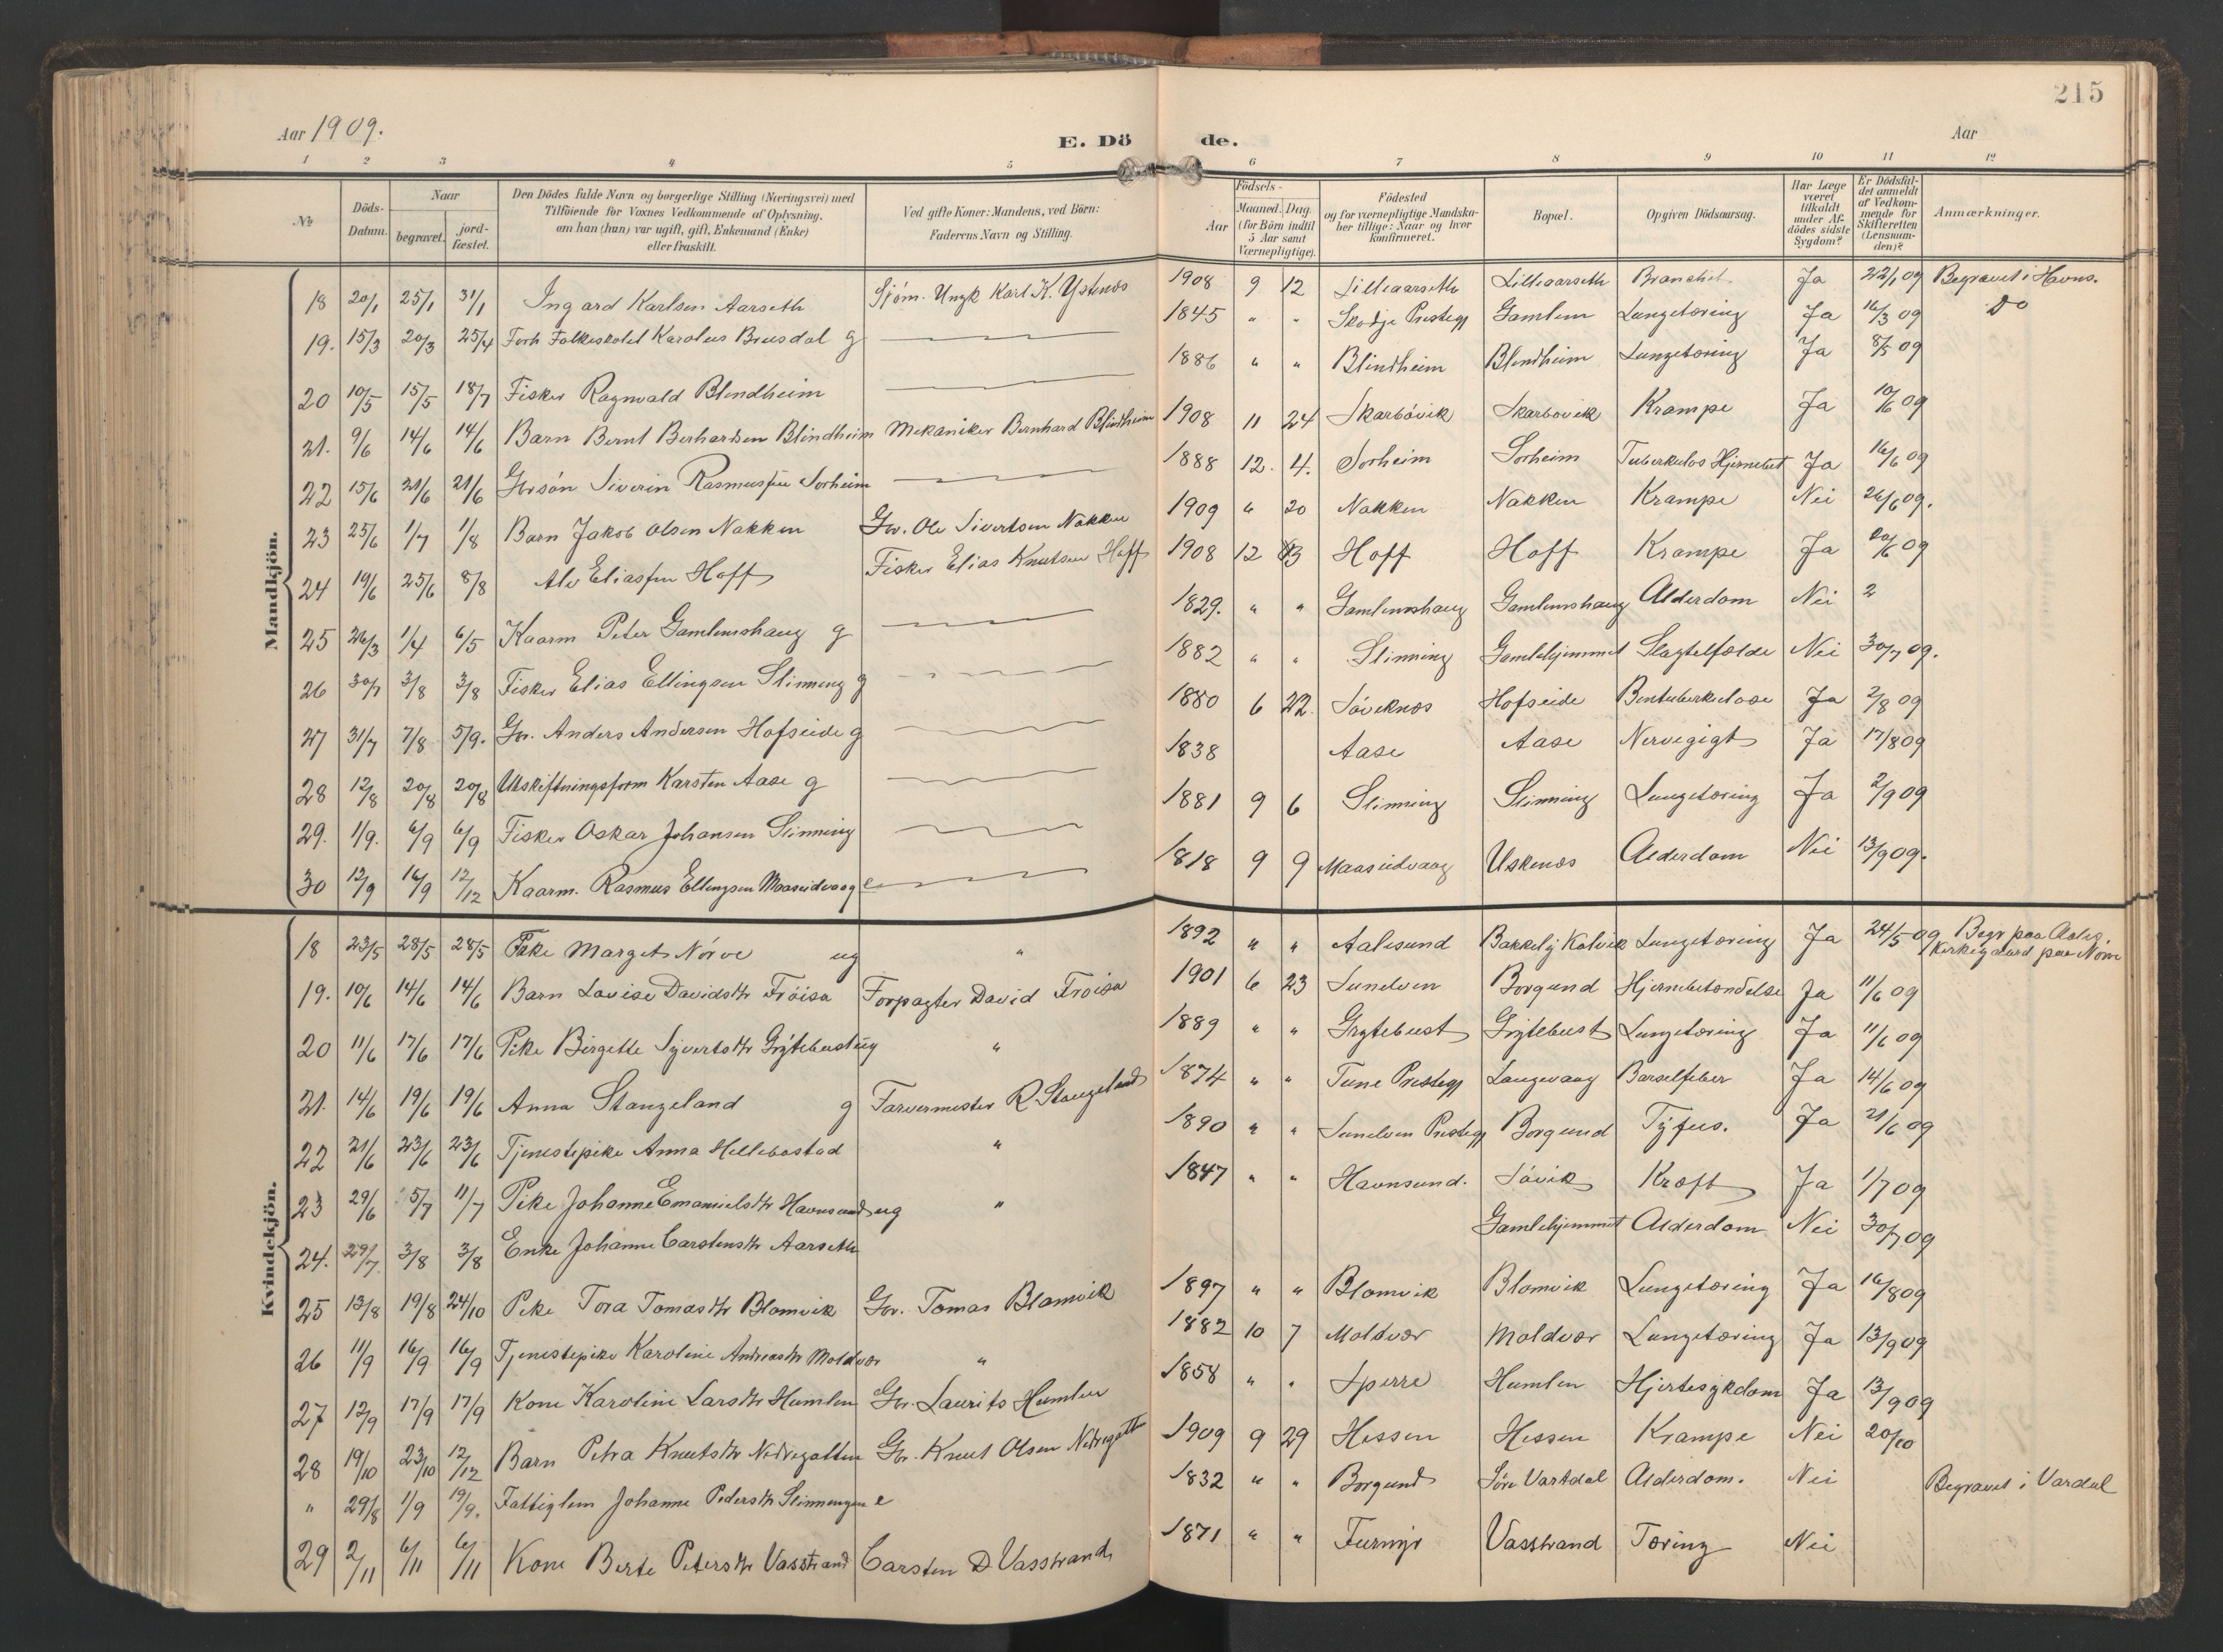 215
Aar 1909.
E. Dö de.
Aar
1 2 3 4 5 6 7 8 9 10 11 12
№
Döds-Datum.
Naar
begravet.
jord-fæstet.
Den Dödes fulde Navn og borgerlige Stilling (Næringsvei) med
Tilföiende for Voxnes Vedkommende af Oplysning.
om han (hun) var ugift, gift, Enkemand (Enke)
eller fraskilt.
Ved gifte Koner: Mandens, ved Börn:
Faderens Navn og Stilling.
Födsels-
Aar
Maaned. Dag.
(for Börn indtil
5 Aar samt
Værnepligtige).
Födested
og for værnepligtige Mandska-
ber tillige: Naar og hvor
konfirmeret.
Bopæl.
Opgiven Dödsaarsag.
Har Læge
været
tilkaldt
under Af-
dödes sidste
Sygdom?
Er Dödsfal-
det anmeldt
af Vedkom-
mende for
Skifteretten
(Lensman-
den)?
Anmærkninger.
Mandkjön.
18 20/1 25/1 31/1 Ingard Karlsen Aarseth Sjöm. Ungk Karl K. Ystenæs 1908 9 12 Lilleaarseth Lilleaarseth Bronchit Ja 22/1 09 Begravet i Havns.
19. 15/3 20/3 25/4 Forh Folkeskolel Karolus Brusdal g 1845 " " Skodje Prestegj Gamlem Lungetæring Ja 16/3 09 Do
20 10/5 15/5 18/7 Fisker Ragnvald Blindheim 1886 " " Blindheim Blindheim Lungetæring Ja 8/5 09
21. 9/6 14/6 14/6 Barn Bernt Berhardsen Blindheim Mekaniker Bernhard Blindheim 1908 11 24 Skarbövik Skarbovik Krampe Ja 10/6 09
22 15/6 21/6 21/6 Grsön Siverin Rasmussen Sorheim 1888 12. 4. Sorheim Sorheim Tuberkulos Hjernebet Ja 16/6 09
23 25/6 1/7 1/8 Barn Jakob Olsen Nakken Gr. Ole Sivertsen Nakken 1909 " 20 Nakken Nakken Krampe Nei 26/6 09.
24 19/6 25/6 8/8 Alv Eliassen Hoff Fisker Elias Knutsen Hoff 1908 12 13 Hoff Hoff Krampe Ja 20/6 09
25 26/3 1/4 6/5 Kaarm Peter Gamlemshaug g 1829. " " Gamlemshaug Gamlemshaug Alderdom Nei 2
26 30/7 3/8 3/8 Fisker Elias Ellingsen Slinning g 1882 " " Slinning Gamlehjemmet Slagtelfælde Nei 30/7 09.
27 31/7 7/8 5/9. Gr. Anders Andersen Hofseide g 1880 6 22. Söveknæs Hofseide Bentuberkulose Ja 2/8 09
28 12/8 20/8 20/8 Utskiftningsform Karsten Aase g 1838 Aase Aase Nervegigt Ja 17/8 09
29. 1/9. 6/9 6/9 Fisker Oskar Johansen Slinning 1881 9 6 Slinning Slinning Lungetæring Ja 2/9 09
30 12/9 16/9 12/12 Kaarm. Rasmus Ellingsen Maaseidvaag e 1818 9 9 Maaseidvaag Uskenæs Alderdom Nei 13/9 09.
Kvindekjön.
18 23/5 28/5 28/5 Pike Marget Nörve ug " 1892 " " Aalesund Bakkelj Kalvik Lungetæring Ja 24/5 09 Begr paa Aales.
Kirkegaard paa Nörv
19. 10/6 14/6 14/6 Barn Lovise Davidsdtr Fröisa Forpagter David Froisa 1901 6 23 Sunelven Borgund Hjernebetændelse Ja 11/6 09
20 11/6 17/6 17/6 Pike Birgitte Syvertsdtr Grytebust ug " 1889 " " Grytebust Grytebust Lungetæring Ja 11/6 09
21. 14/6 19/6 19/6 Anna Stangeland g Farvermester R Stangeland 1874 " " Tune Prestegj Langevaag Barselfeber Ja 14/6 09
22 21/6 23/6 23/6 Tjenestepike Anna Hellebostad " 1890 " " Sunelven Prestegj Borgund Tyfus. Ja 21/6 09
23 29/6 5/7 11/7 Pike Johanne Emanuelsdtr Havnsund ug " 1847 " " Havnsund. Sövik Kræft Ja 1/7 09
24. 29/7. 3/8 3/8 Enke Johanne Carstensdtr Aarseth Gamlehjemmet Alderdom Nei 30/7 09
25 13/8 19/8 24/10 Pike Tora Tomasdtr Blomvik Gr. Tomas Blomvik 1897 " " Blomvik Blomvik Lungetæring Ja 16/8 09
26 11/9 16/9 16/9 Tjenestepike Karoline Andreasdtr Moldvær " 1882 10 7 Moldvær Moldvær Lungetæring Ja 13/9 09
27 12/9 17/9 17/9 Kone Karoline Larsdtr Humlen Gr. Laurits Humlen 1858 " " Sperre Humlen Hjertesykdom Ja 13/9 09
28 19/10 23/10 12/12 Barn Petra Knutsdtr Nedregotten Gr. Knut Olsen Nedregotten 1909 9 29 Hessen Hessen Krampe Nei 20/10
" 29/8 1/9 19/9. Fattiglem Johanne Pedersdtr Slinningen e 1832 " " Borgund Söre Vartdal Alderdom. Nei Begravet i Vardal
29 2/11 6/11 6/11 Kone Berte Petersdtr Vasstrand Carsten D Vasstrand 1871 " " Furmyr Vasstrand Tæring Nei